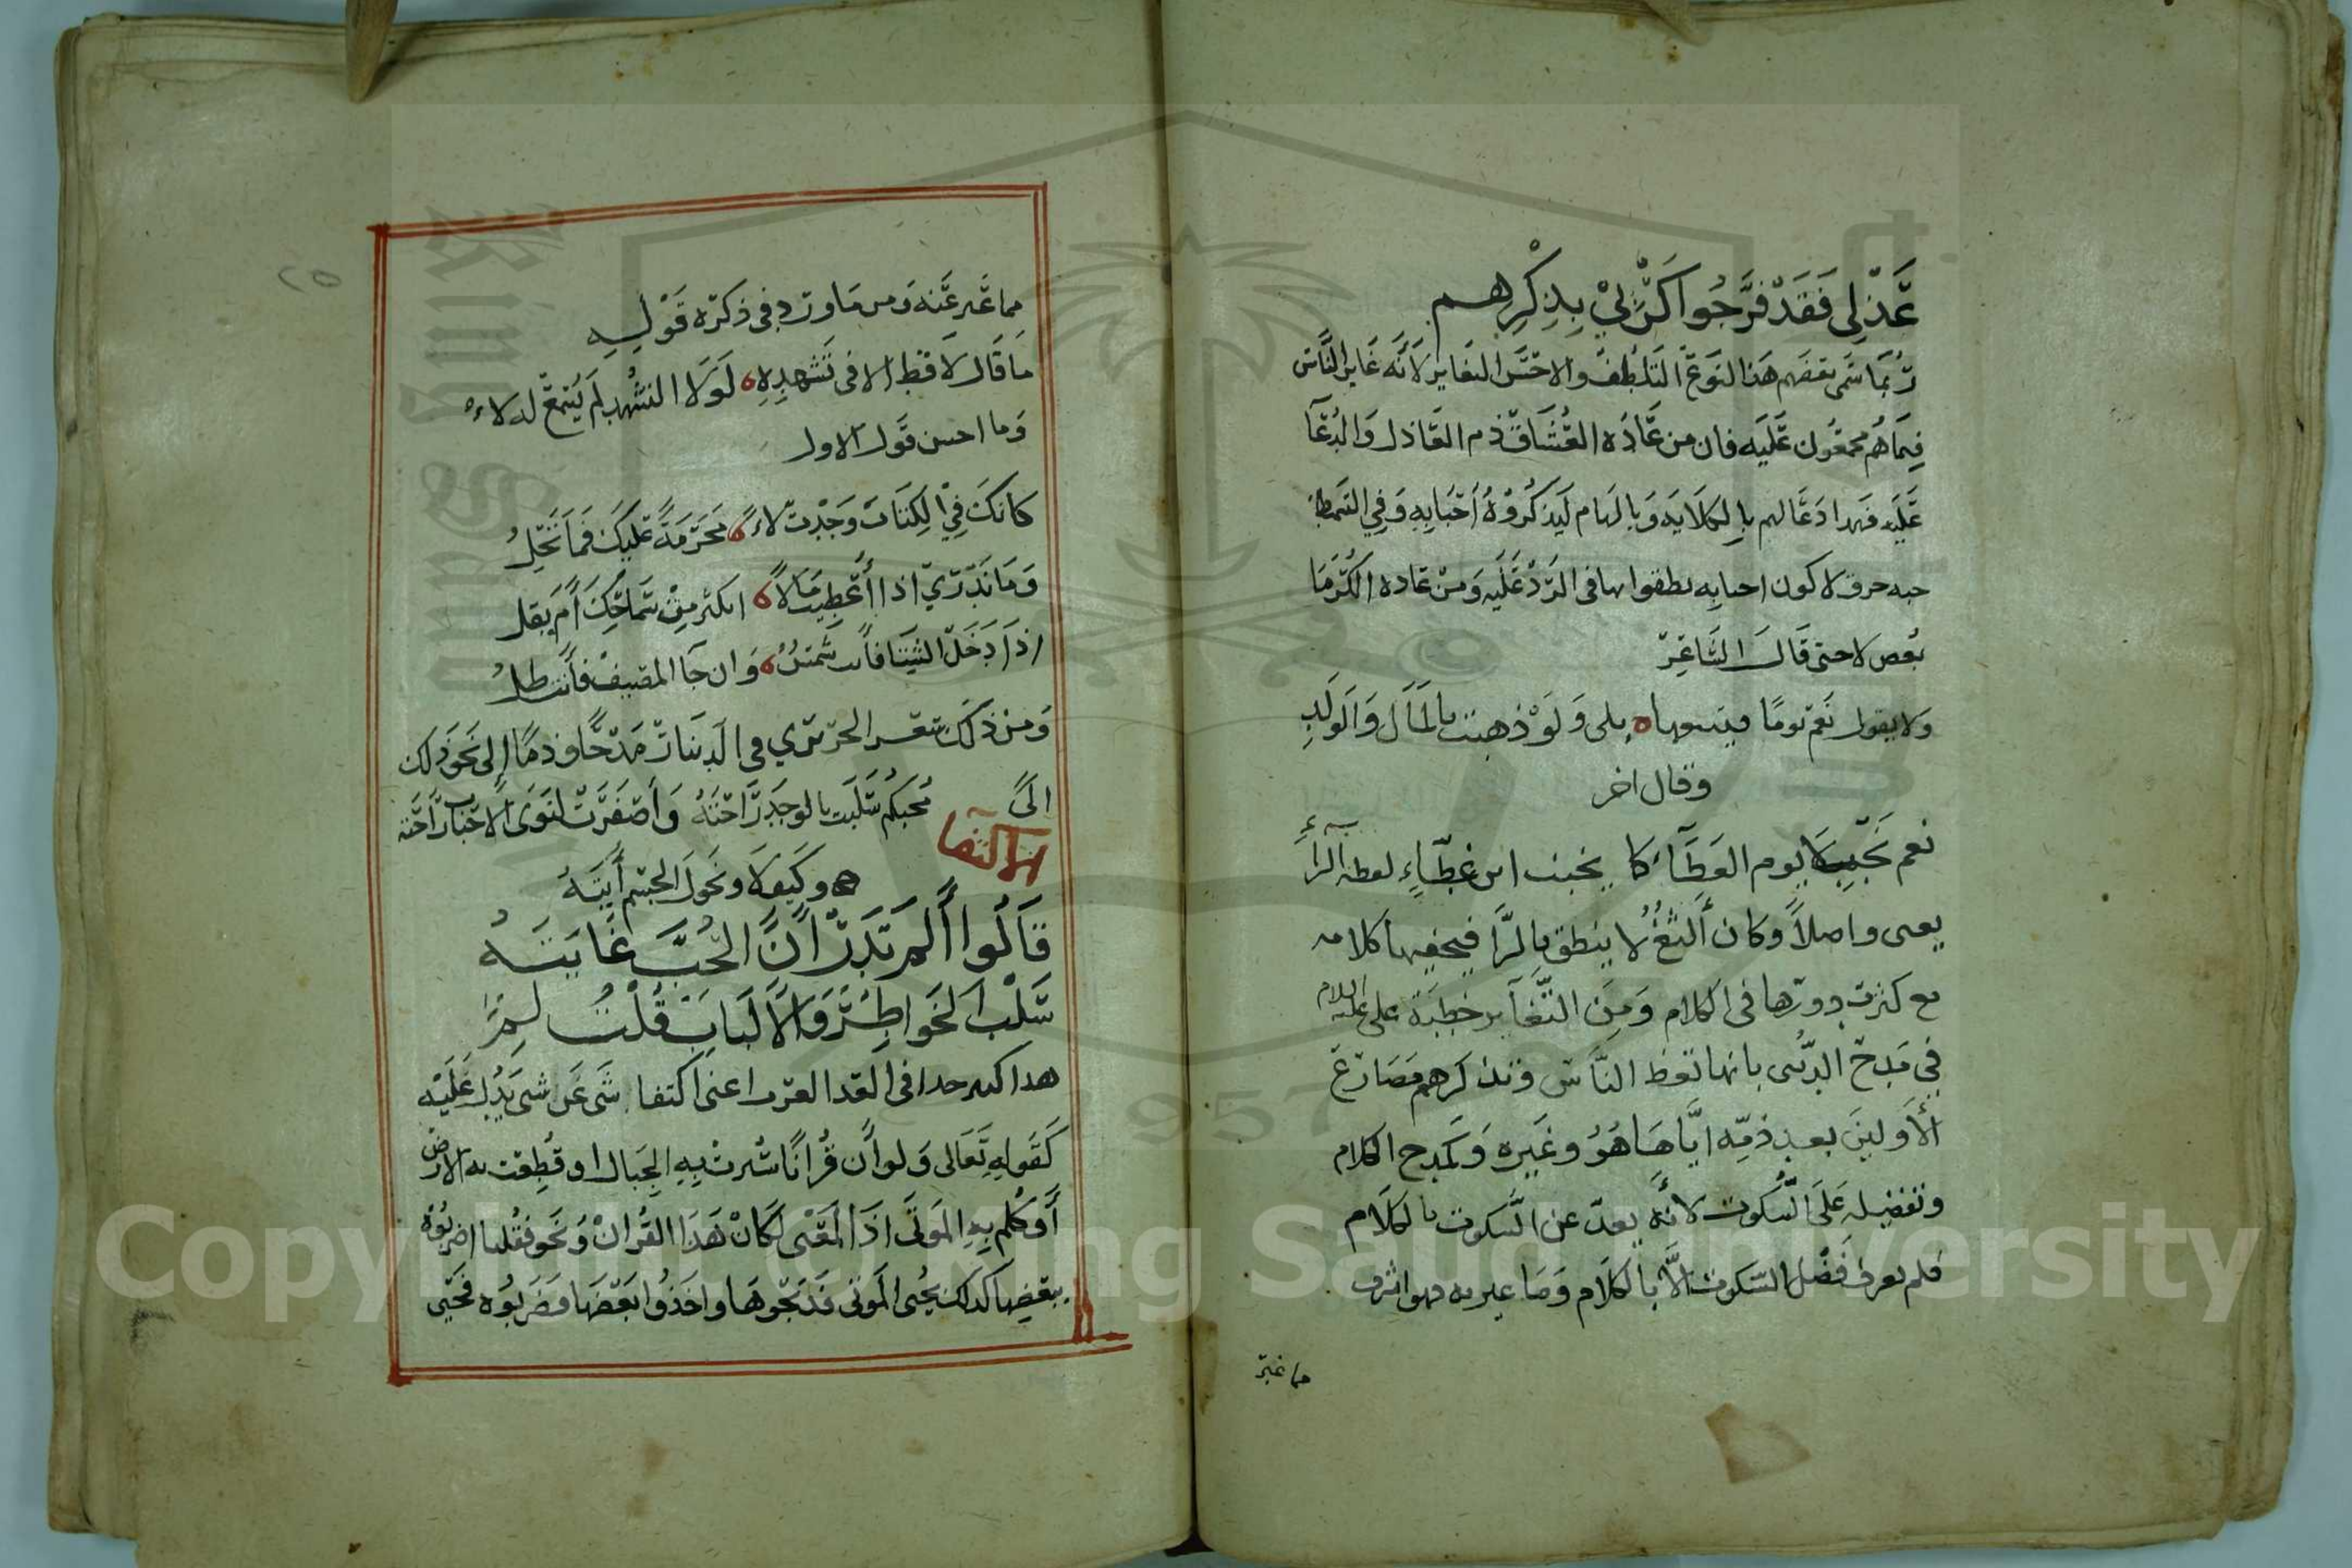 عَذْلِي فَقَدْ فَرَّجُوا كَرْبِيْ بِذِكْرِهِم
رُبَمَا سَمَّى بَعْضَهم هَذا النَوعَ التَلطُف والاحسَن التغاير لأنَّه غَاير النَّاسَ
فِيمَا هُم مجمعُون عَلَيه فان من عَادَه العُشاق ذم العَاذل وَالدُعَآ
عَلَيه فهدا دَعَا لهم بالكلايَه وَبالهام لَيذكرُوْهُ احْبَابِهِ وَفِي
حرف لا كون احبابِه نطقوا بها فى الرَدْ عَلَيه وَمن عَاده الكُرَمَا
بُعص لا حتى قَالَ الشَاعِرْ
ولا يقول نَعَم يومًا بلى وَلَوْ ذهبت بالمَال وَالوَلَدِ
وقال اخر
نعم تَجنبَ لا يوم العَطَآء كا يجنب ابن عَطَّاءٍ لفظه الرآءِ
يعنى واصلاً وكان أَلْثَغُ لا ينطق بالرَّا كلامه
مع كثرت دورها فى الكلام وَمِنَ التَّغَآير خطبَة على عليه السلام
فِي مَدح الدُنيى بانها تعظ النَّاسَ وتذكرهم مَصَارعَ
الأَولينَ بعد ذمّه ايَّاهَا هُوُ وغَيره وَكمدح الكلام
وتفضيله عَلَى السُكوت لانَّه يعدّ عن السكوت بالكلام
فلم يعرف فَضْل السّكوت الَّا بالكَلام وَمَا عبر به فهو اشرف
مما عَبّر
مما عَبر عَنه وَمن مَا ورد فى ذكره قَوْلِه
مَا قَال لَا قط الا فى تَشهدِهِ ه لَولَا التشهد لَم يُسمَعْ له لاءَ
وَما احسن قَول الاول
كانكَ فِيْ الكِتَابْ وَجَدْتَ لاءً ه مُحَرَّمَةً عَليكَ فَمَا تَحِلُ
وَمَا نَدْرَيْ اذا أُعْطِيت مَالاً ه اتكثر مِنْ سَمَاحِكَ أَم يقل
اذَا دَخَلَ الشِّتَا فأنت شَمسٌ ه وَان جَا المصيفْ فأنت ظلُ
وَمنْ ذلَكَ شعر الحريري فى الدينار مَدْحًا وذمًا إلى نَحو ذلك
الَى
الاكتفآ
مُحبكُم سُلَبت بالوجد رَاحَتَهُ وَأصْفَرَّتْ لنَوَى الاحْبَاب رَاحَته
وكَيفَ لَا ونحُولَ الجسْم أيَتَهُ
قَالُوا أَلَم تَدْر أَنَّ الحُبَّ غَايتَهُ
سَلْبُ الخَواطِرْ وَالأَلبَاب قُلْتُ لَمِ
هدا اكبر حدا فى العَدا اعنى اكتفا شَى عَن شى يَدُل عَلَيْه
كَقَولِهِ تَعَالى وَلو أَن قُرانًا سُيرتْ بِهِ الجِبَال او قُطِعت به الارض
أَو كُلم بِهِ المَوتَى اذَا المَعْنى لَكَانْ هَذَا القُرانْ وَنَحو فقُلنا اضربُوْهُ
ببَعْضِها كَدلك يُحْيى المَوتى فَذبَحُوهَا وَاخَذُوا بَعْضَهَا فَضَربُوه فَحَيى
٢٥
Copyright © King Saud University
1957